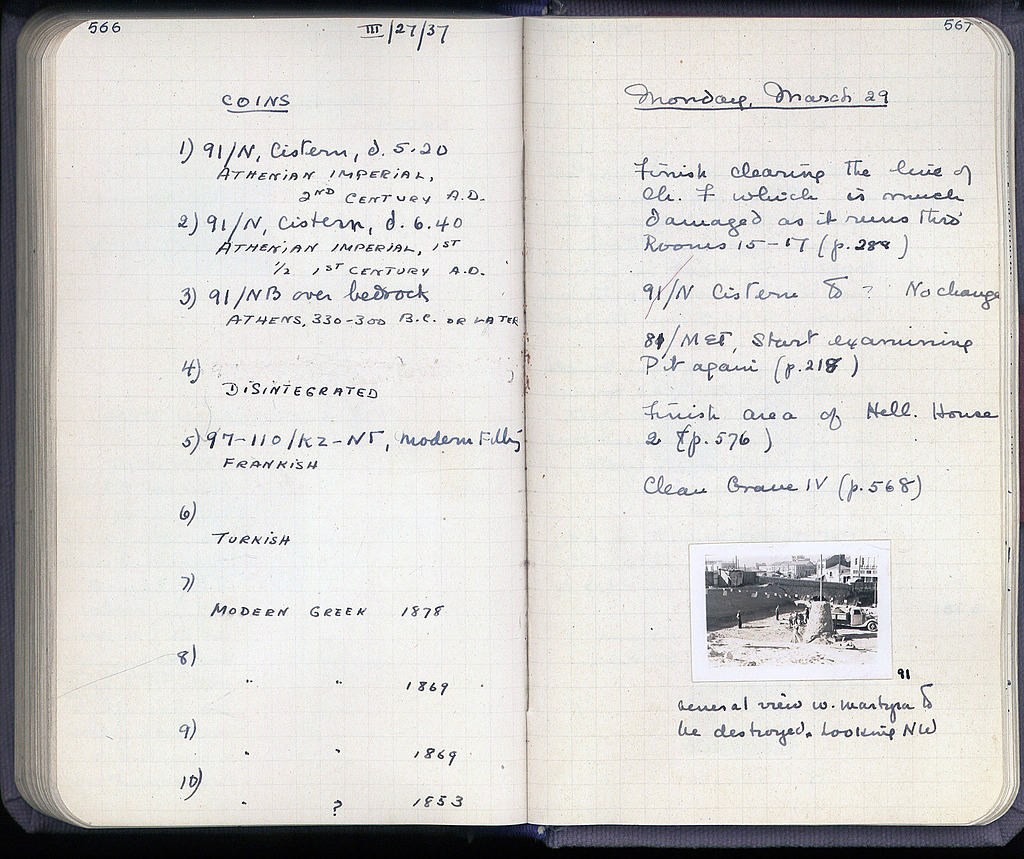 566
III/27/37
COINS
1) 91/N, Cistern, d. 5.20
ATHENIAN IMPERIAL,
2ND CENTURY A.D.
2) 91/N, Cistern, d. 6.40
ATHENIAN IMPERIAL, 1ST
1/2 1ST CENTURY A.D.
3) 91/NB over bedrock
ATHENS, 330-300 B.C. OR LATER
4)
DISINTEGRATED
5) 97-110/KZ-NT, Modern Filling
FRANKISH
6)
TURKISH
7)
MODERN GREEK 1878
8)
" " 1869
9)
" " 1869
10)
" ? 1853
567
Monday, March 29
Finish clearing the line of
Ch. F which is much
damaged as it runs thro'
Rooms 15-17 (p. 288)
91/N Cistern ? No change
/ME, Start examining
Pit again (p. 218)
Finish area of Hell. House
2 (p. 576)
Clean Grave IV (p. 568)
91
General view w. martyra to
be destroyed. Looking NW